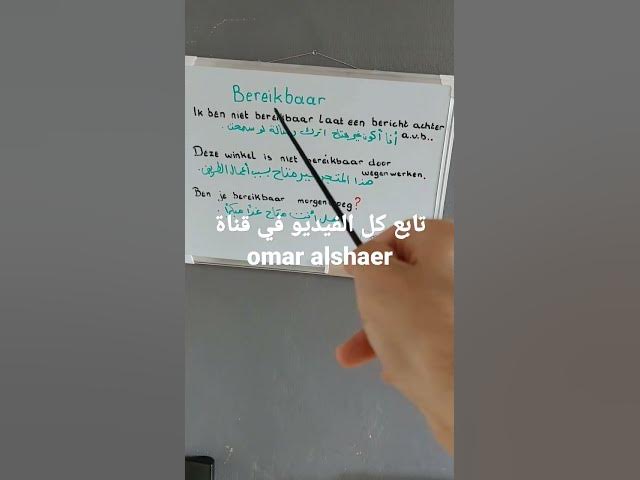 Bereikbaar
Ik ben niet bereikbaar laat een bericht achter
a.u.b..
أنا أكون غير متاح اترك رسالة لو سمحت.
Deze winkel is niet bereikbaar door
wegenwerken.
هذا المتجر غير متاح بسبب أعمال الطريق.
Ben je bereikbaar morgenvroeg?
تابع كل الفيديو في قناة
omar alshaer